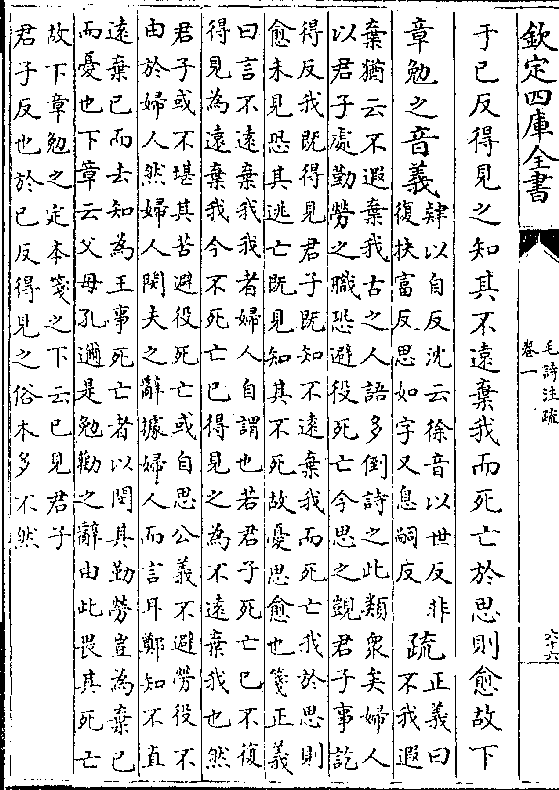 欽定四庫全書
毛詩注疏
卷一
六十六
于已反得見之知其不遠棄我而死亡於思則愈故下
章勉之音義肄以自反沈云徐音以世反非
復扶富反思如字又息嗣反
疏正義曰
不我遐
棄猶云不遐棄我古之人語多倒詩之此類衆矣婦人
以君子處勤勞之職恐避役死亡今思之覬君子事訖
得反我既得見君子既知不遠棄我而死亡我於思則
愈未見恐其逃亡既見知其不死故憂思愈也箋正義
曰言不遠棄我我者婦人自謂也若君子死亡已不復
得見為遠棄我今不死亡已得見之為不遠棄我也然
君子或不堪其苦避役死亡或自思公義不避勞役不
由於婦人然婦人閔夫之辭據婦人而言耳鄭知不直
遠棄已而去知為王事死亡者以閔其勤勞豈為棄已
而憂也下章云父母孔邇是勉勸之辭由此畏其死亡
故下章勉之定本箋之下云已見君子
君子反也於已反得見之俗本多不然